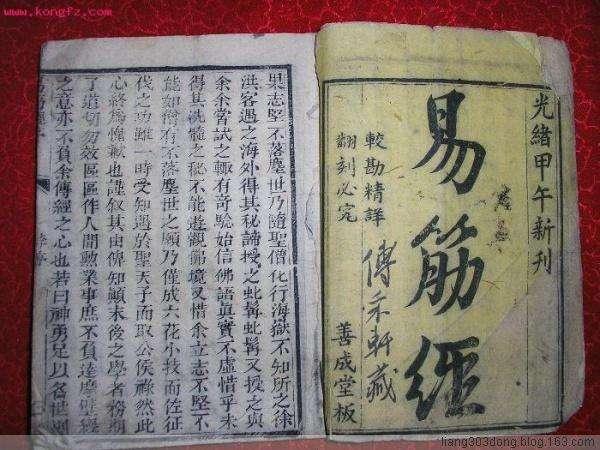 光緒甲午新刊
易筋經
較勘精詳
翻刻必究
軒藏
善成堂板
果志堅不落塵世乃隨聖僧化行海嶽不知所之徐
洪客遇之海外得其秘諦授之虬髯虬髯又授之與
余余嘗試之輒有奇驗始信佛語真實不虛惜乎未
得其洗髓之秘不能遊觀佛境又惜余立志不堅不
能如僧有不落塵世之願乃僅成六花小技而佐征
伐之功雖一時受知遇於聖天子而取公侯祿然此
心終為愧歉也謹叙其由俾知顛末後之學者務期
了道切勿效區區作人間勳業事庶不負達摩
之意亦不負余傳經之心也若曰神勇足以名世則
www.kongfz.com
liang303dong.blog.163.com